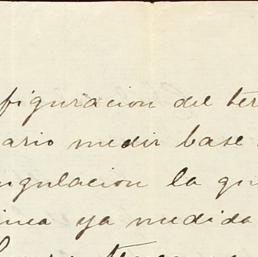 figuracion del ter
ario medir base
ngulacion la qu
inea ya medida